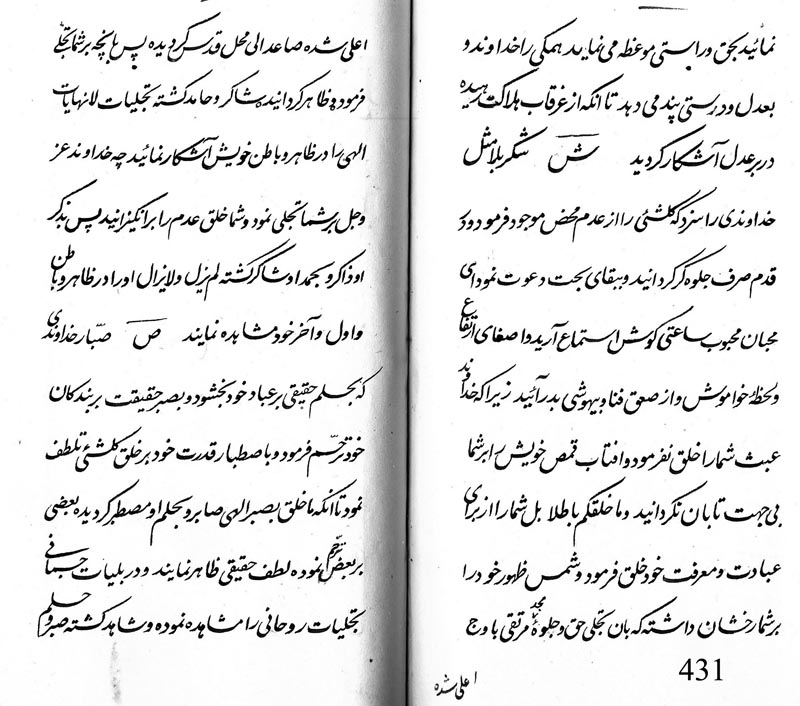 نمائید بحق و راستی موعظه می نماید همکی را خداوند و
بعدل و درستی پند می دهد تا انکه از غرقاب هلاکت رهیده
در بر عدل آشکار کردید ش شکر بلا مثل
خداوندی را سزد که کلشئی را از عدم محض موجود فرمود و در
قدم صرف جلوه کر کردانید و ببقای بحت دعوت نمود ای
محبان محبوب ساعتی کوش استماع آرید و اصغای ارتفاع
و لحظهٔ خواموش و از صعق فنا و بیهوشی بدر آئید زیرا که خداوند
عبث شما را خلق نفرمود و افتاب قمص خویش را بر شما
بی جهت تابان نکردانید و ما خلقکم باطلا بل شما را از برای
عبادت و معرفت خود خلق فرمود و شمس ظهور خود را
بر شما رخشان داشته که بان تجلی حق و جلوهٔ مجد مرتقی باوج
431
اعلی شده
اعلی شده صاعد الی محل قدس کردیده پس بانچه بر شما تجلی
فرموده و ظاهر کردانید شاکر و حامد کشته تجلیات لانهایات
الهی را در ظاهر و باطن خویش آشکار نمائید چه خداوند عز
و جل بر شما تجلی نمود و شما خلق عدم را بر انکیزانید پس بذکر
او ذاکر و بحمد او شاکر کشته لم یزل و لایزال او را در ظاهر و باطن
و اول و آخر خود مشاهده نمایند ص صبّار خداوندی
که بحلم حقیقی بر عباد خود بخشود و بصبر حقیقت بر بندکان
خود ترحّم فرمود و باصطبار قدرت خود بر خلق کلشئی تلطف
نمود تا انکه ما خلق بصبر الهی صابر و بحلم او مصطبر کردیده بعضی
بر بعض ترحم نموده لطف حقیقی ظاهر نمایند و در بلیات جسمانی
تجلیات روحانی را مشاهده نموده و شاهد کشته صبر و حلم